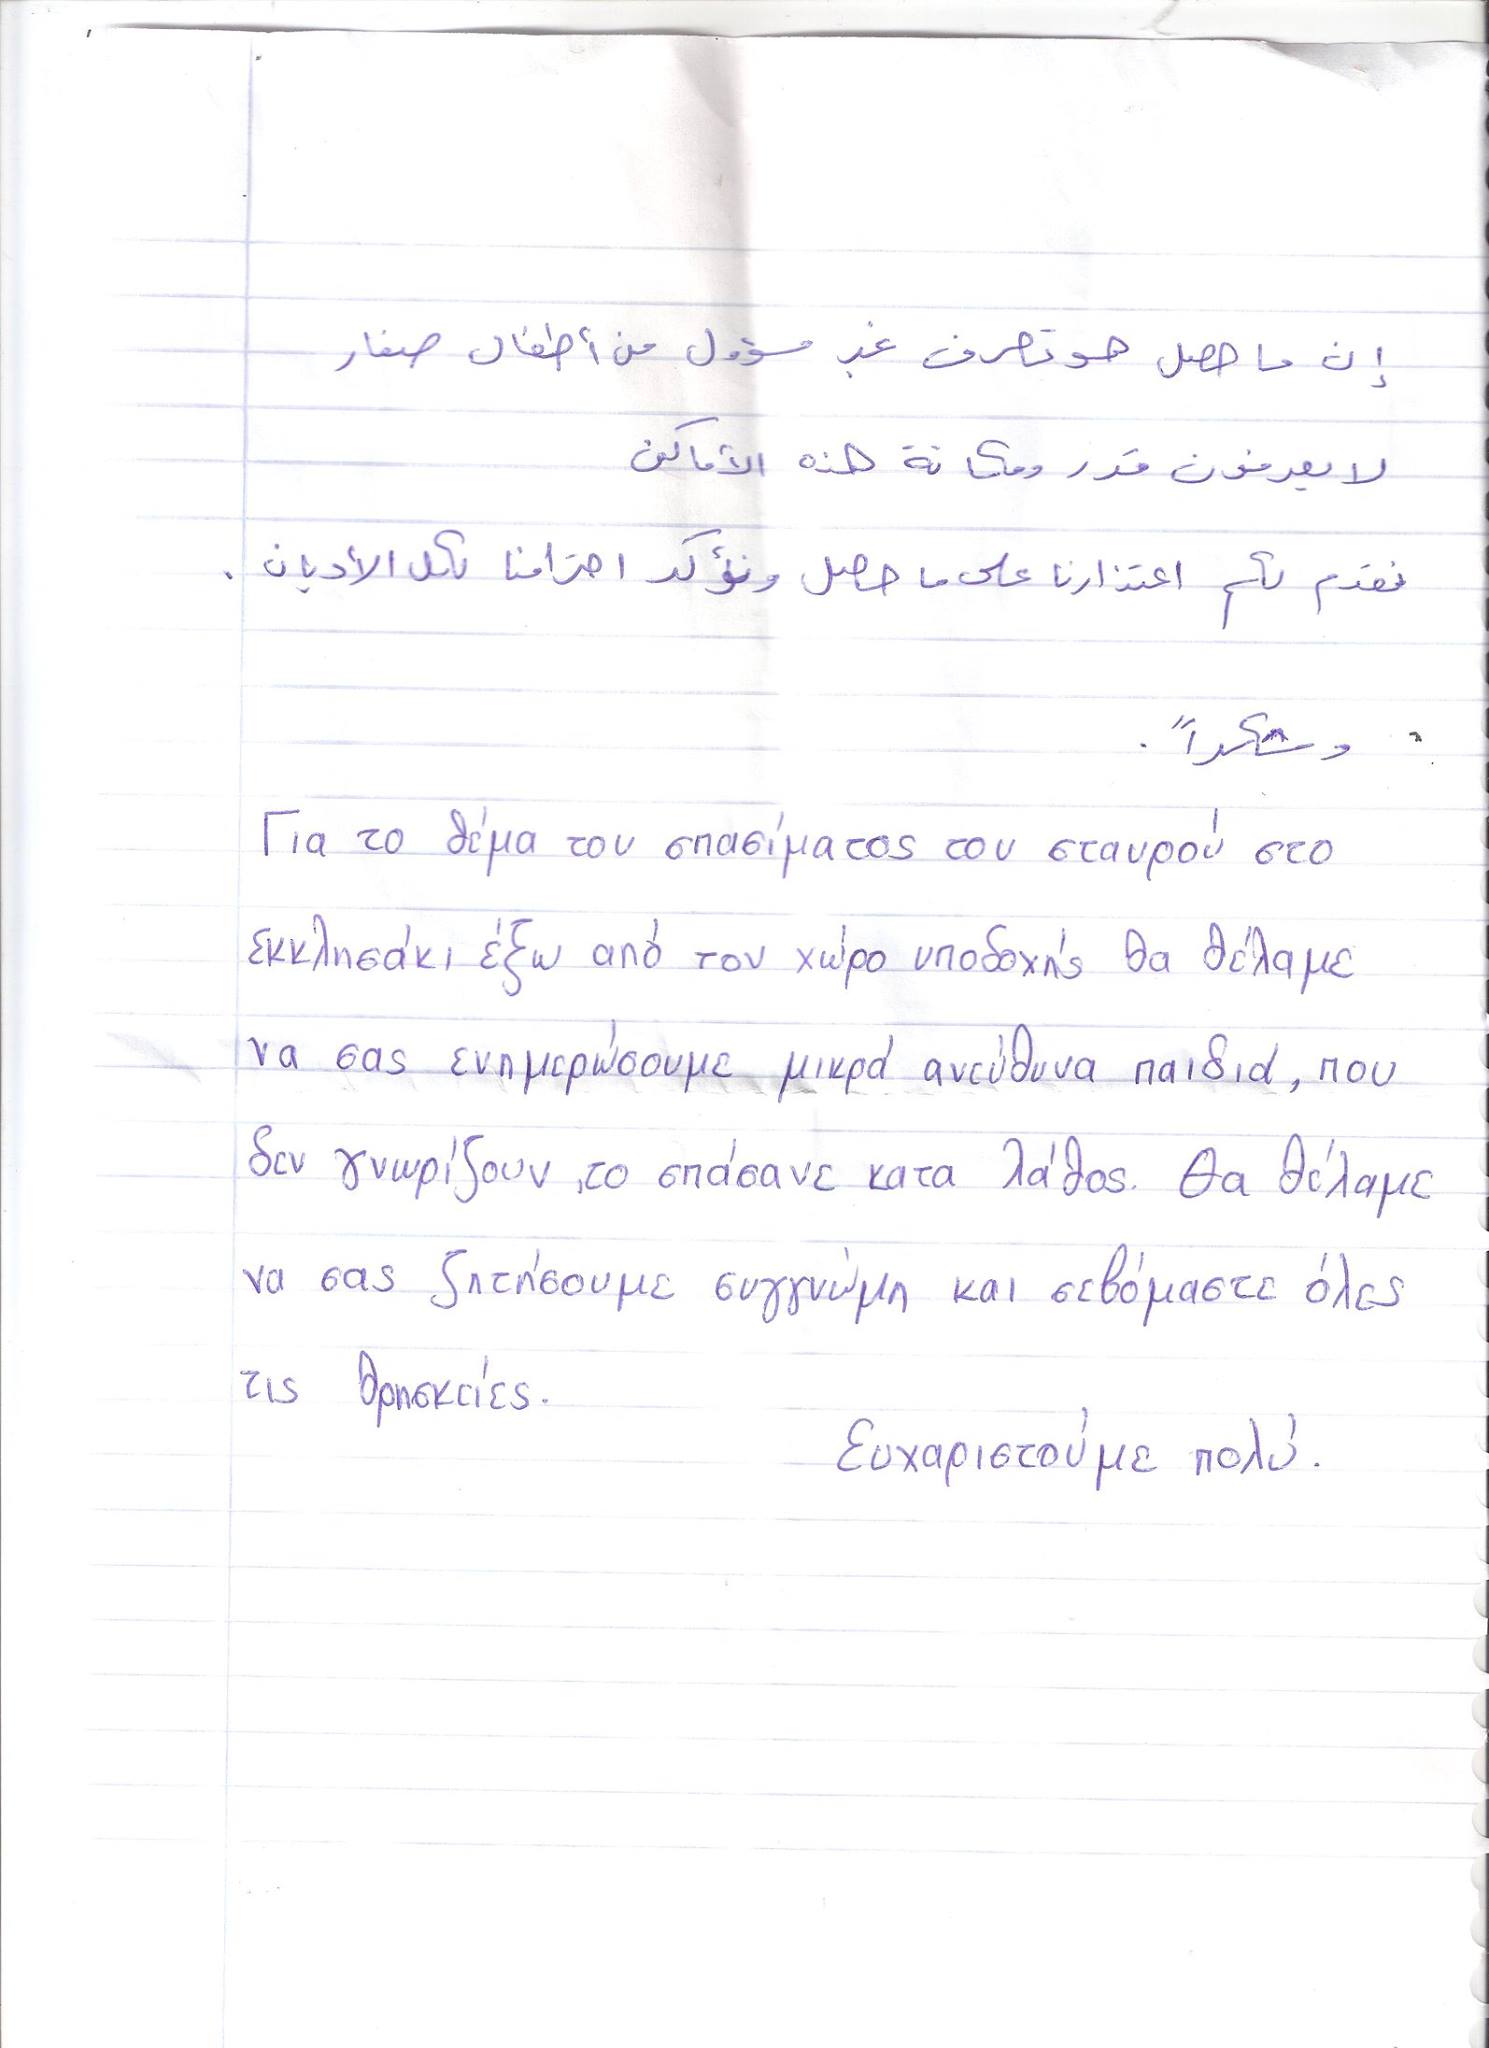 إن ما حصل هو تصرف غير مسؤول من أطفال صغار
لا يعرفون قدر ومكانة هذه الأماكن
نقدم لكم اعتذارنا على ما حصل ونؤكد احترامنا لكل الأديان .
وشكراً .
Για το θέμα του σπασίματος του σταυρού στο
εκκλησάκι έξω από τον χώρο υποδοχής θα θέλαμε
να σας ενημερώσουμε μικρά ανεύθυνα παιδιά, που
δεν γνωρίζουν, το σπάσανε κατα λάθος. Θα θέλαμε
να σας ζητήσουμε συγγνώμη και σεβόμαστε όλες
τις θρησκείες.
Ευχαριστούμε πολύ.